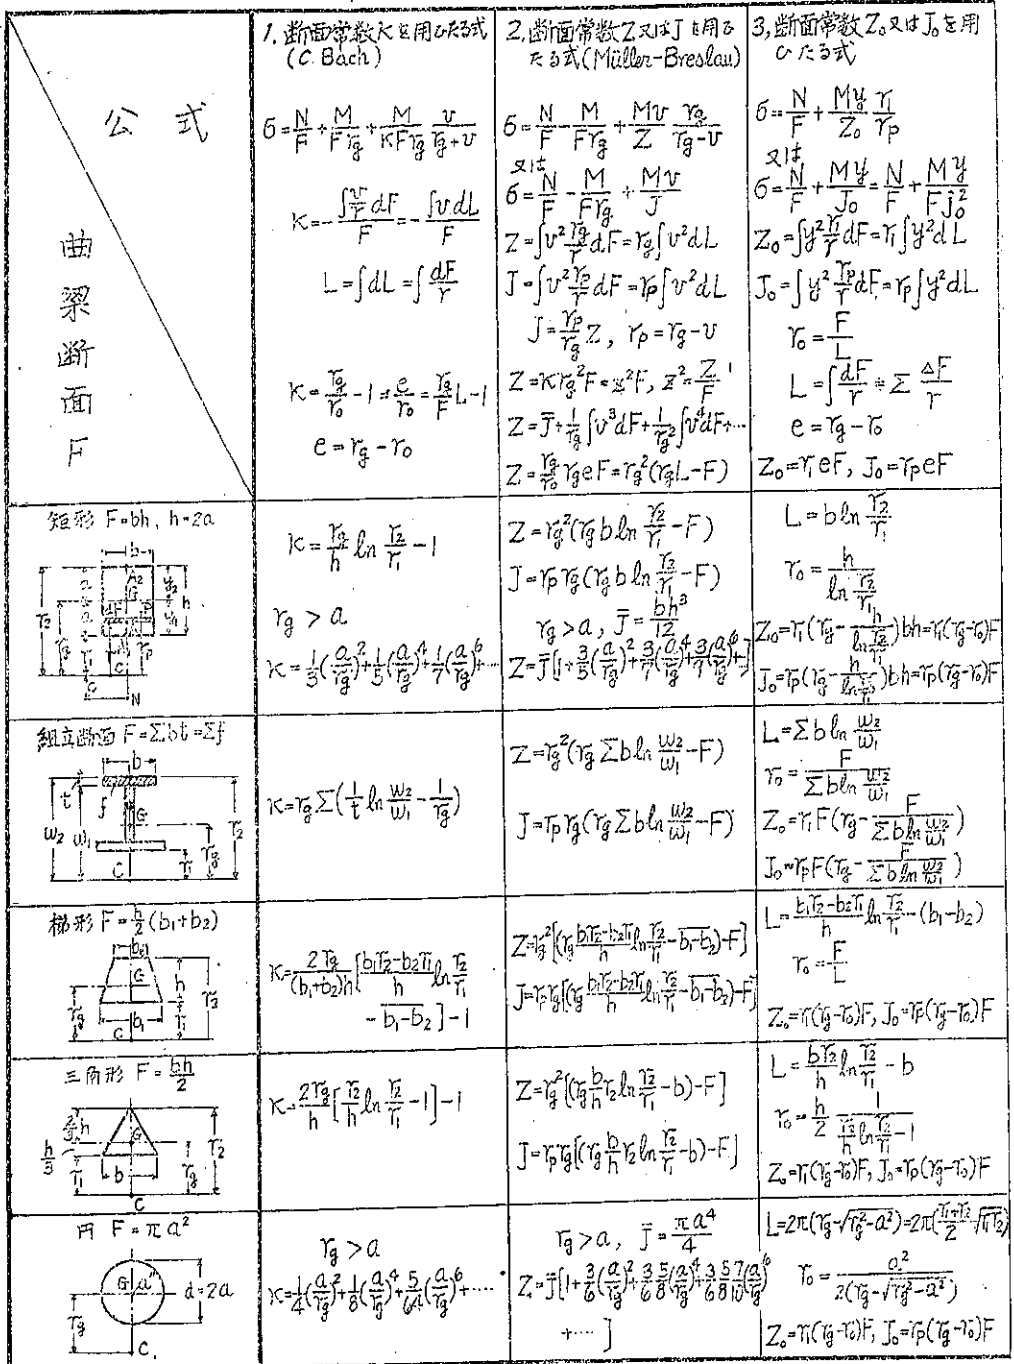 公 式
曲梁断面 F
1, 断面常数 K を用ひたる式
(C. Bach)
σ = N/F + M/(F r_g) + M/(κ F r_g) · v/(r_g + v)
κ = - ∫(v/r)dF / F = - ∫v dL / F
L = ∫dL = ∫ dF/r
κ = r_g/r_0 - 1 = e/r_0 = (r_g/F) L - 1
e = r_g - r_0
2, 断面常数 Z 又は J を用ひ
たる式 (Müller-Breslau)
σ = N/F - M/(F r_g) + (M v/Z) · r_g/(r_g - v)
又は
σ = N/F - M/(F r_g) + M v/J
Z = ∫v² (r_g/r) dF = r_g ∫v² dL
J = ∫v² (r_p/r) dF = r_p ∫v² dL
J = (r_p/r_g) Z, r_p = r_g - v
Z = κ r_g² F = z² F, z² = Z/F
Z = J̄ + (1/r_g) ∫v³ dF + (1/r_g²) ∫v⁴ dF + ···
Z = (r_g/r_0) r_g e F = r_g² (r_g L - F)
3, 断面常数 Z₀ 又は J₀ を用
ひたる式
σ = N/F + (M y/Z₀) · r₁/r_p
又は
σ = N/F + M y/J₀ = N/F + M y/(F j₀²)
Z₀ = ∫y² (r₁/r) dF = r₁ ∫y² dL
J₀ = ∫y² (r_p/r) dF = r_p ∫y² dL
r₀ = F/L
L = ∫ dF/r ≑ Σ ΔF/r
e = r_g - r₀
Z₀ = r₁ e F, J₀ = r_p e F
矩形 F = bh, h = 2a
κ = (r_g/h) ln (r₂/r₁) - 1
r_g > a
κ = 1/3 (a/r_g)² + 1/5 (a/r_g)⁴ + 1/7 (a/r_g)⁶ + ···
Z = r_g² (r_g b ln (r₂/r₁) - F)
J = r_p r_g (r_g b ln (r₂/r₁) - F)
r_g > a, J̄ = bh³/12
Z = J̄ [1 + 3/5 (a/r_g)² + 3/7 (a/r_g)⁴ + 3/9 (a/r_g)⁶ + ··]
L = b ln (r₂/r₁)
r₀ = h / ln (r₂/r₁)
Z₀ = r₁ (r_g - h/ln(r₂/r₁)) bh = r₁ (r_g - r₀) F
J₀ = r_p (r_g - h/ln(r₂/r₁)) bh = r_p (r_g - r₀) F
組立断面 F = Σbt = Σf
κ = r_g Σ (1/t ln (w₂/w₁) - 1/r_g)
Z = r_g² (r_g Σ b ln (w₂/w₁) - F)
J = r_p r_g (r_g Σ b ln (w₂/w₁) - F)
L = Σ b ln (w₂/w₁)
r₀ = F / (Σ b ln (w₂/w₁))
Z₀ = r₁ F (r_g - F/(Σ b ln (w₂/w₁)))
J₀ = r_p F (r_g - F/(Σ b ln (w₂/w₁)))
梯形 F = h/2 (b₁ + b₂)
κ = 2 r_g/((b₁ + b₂) h) [(b₁r₂ - b₂r₁)/h ln (r₂/r₁)
- b₁ - b₂] - 1
Z = r_g² [(r_g (b₁r₂ - b₂r₁)/h ln (r₂/r₁) - b₁ - b₂) - F]
J = r_p r_g [(r_g (b₁r₂ - b₂r₁)/h ln (r₂/r₁) - b₁ - b₂) - F]
L = (b₁r₂ - b₂r₁)/h ln (r₂/r₁) - (b₁ - b₂)
r₀ = F/L
Z₀ = r₁ (r_g - r₀) F, J₀ = r_p (r_g - r₀) F
三角形 F = bh/2
κ = 2r_g/h [r₂/h ln (r₂/r₁) - 1] - 1
Z = r_g² [(r_g b/h r₂ ln (r₂/r₁) - b) - F]
J = r_p r_g [(r_g b/h r₂ ln (r₂/r₁) - b) - F]
L = b r₂/h ln (r₂/r₁) - b
r₀ = h/2 · 1/(r₂/h ln (r₂/r₁) - 1)
Z₀ = r₁ (r_g - r₀) F, J₀ = r_p (r_g - r₀) F
円 F = πa²
G a d = 2a
r_g
C
r_g > a
κ = 1/4 (a/r_g)² + 1/8 (a/r_g)⁴ + 5/64 (a/r_g)⁶ + ····
r_g > a, J̄ = πa⁴/4
Z = J̄ [1 + 3/6 (a/r_g)² + 3/6 5/8 (a/r_g)⁴ + 3/6 5/8 7/10 (a/r_g)⁶
+ ···· ]
L = 2π (r_g - √(r_g² - a²)) = 2π ((r₁ + r₂)/2 - √(r₁r₂))
r₀ = a²/(2(r_g - √(r_g² - a²)))
Z₀ = r₁ (r_g - r₀) F, J₀ = r_p (r_g - r₀) F